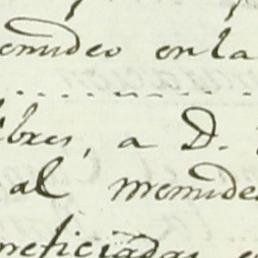 menudeo en la
libres, a D.
al menude
neficiadas